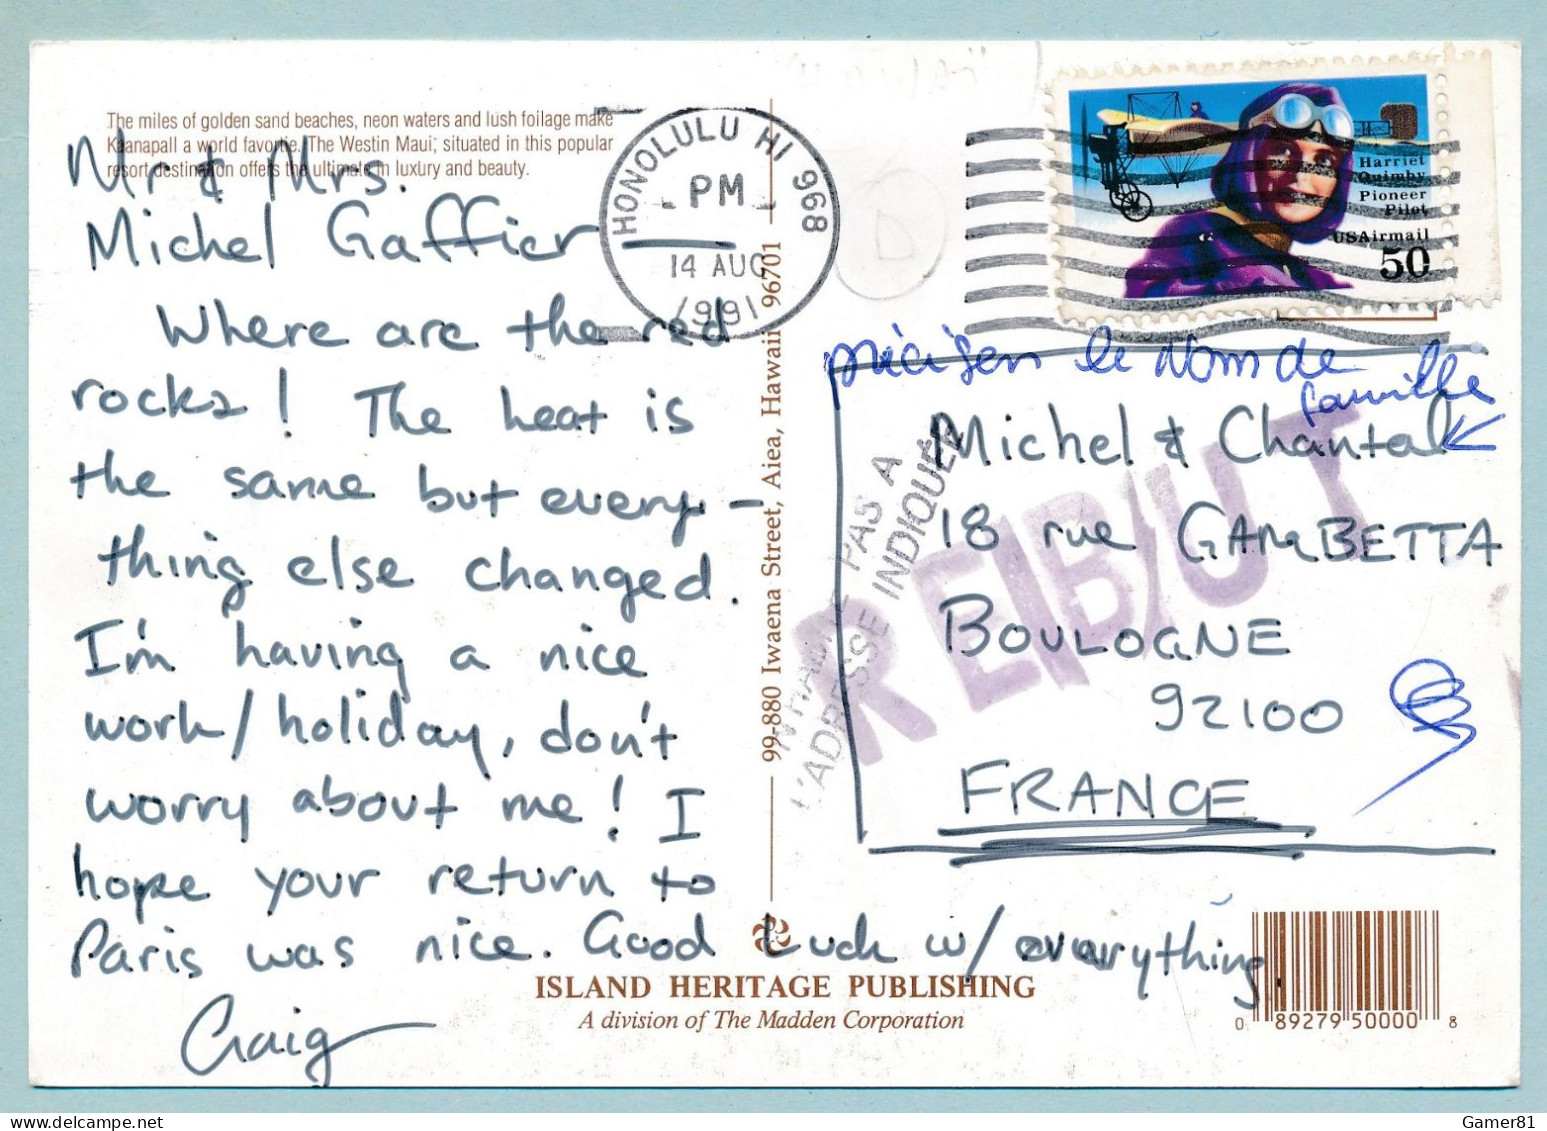 The miles of golden sand beaches, neon waters and lush foilage make
Kaanapali a world favorite. The Westin Maui; situated in this popular
resort destination offers the ultimate in luxury and beauty.
Mr & Mrs.
Michel Gaffier
Where are the red
rocks! The heat is
the same but every-
thing else changed.
I'm having a nice
work/holiday, don't
worry about me! I
hope your return to
Paris was nice. Good Luck w/ everything.
Craig
HONOLULU HI 968
PM
14 AUG
1991
99-880 Iwaena Street, Aiea, Hawaii 96701
Harriet
Quimby
Pioneer
Pilot
USAirmail
50
préciser le Nom de
famille
Michel & Chantal
18 rue GAMBETTA
BOULOGNE
92100
FRANCE
N'HABITE PAS A
L'ADRESSE INDIQUÉE
REBUT
ISLAND HERITAGE PUBLISHING
A division of The Madden Corporation
0 89279 50000 8
Gamer81